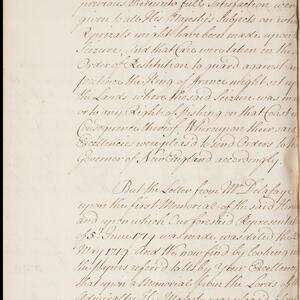 previous thereunto full Satisfaction were
given to all His Majesty's Subjects on whom
Reprisals might have been made upon
Seizure, And that Care were taken in the
Order of Restitution to guard against any
pretence the King of France might set up
the Lands where the said Seizure was made
or to any Right of Fishing on that Coast
Consequence thereof, Whereupon their said
Excellencies were pleas'd to send Orders to the
Governor of New England accordingly.
But the Letter from Mr. Delafaye
upon the first Memorial of the said
and upon which Our foresaid Represent
of 5th June 1719 was made, was dated the
May 1719 and We now find by looking in
the Papers referr'd to Us by Your Excellencies
that upon a Memorial from the Lords of the
Admiralty His Majesty was pleased